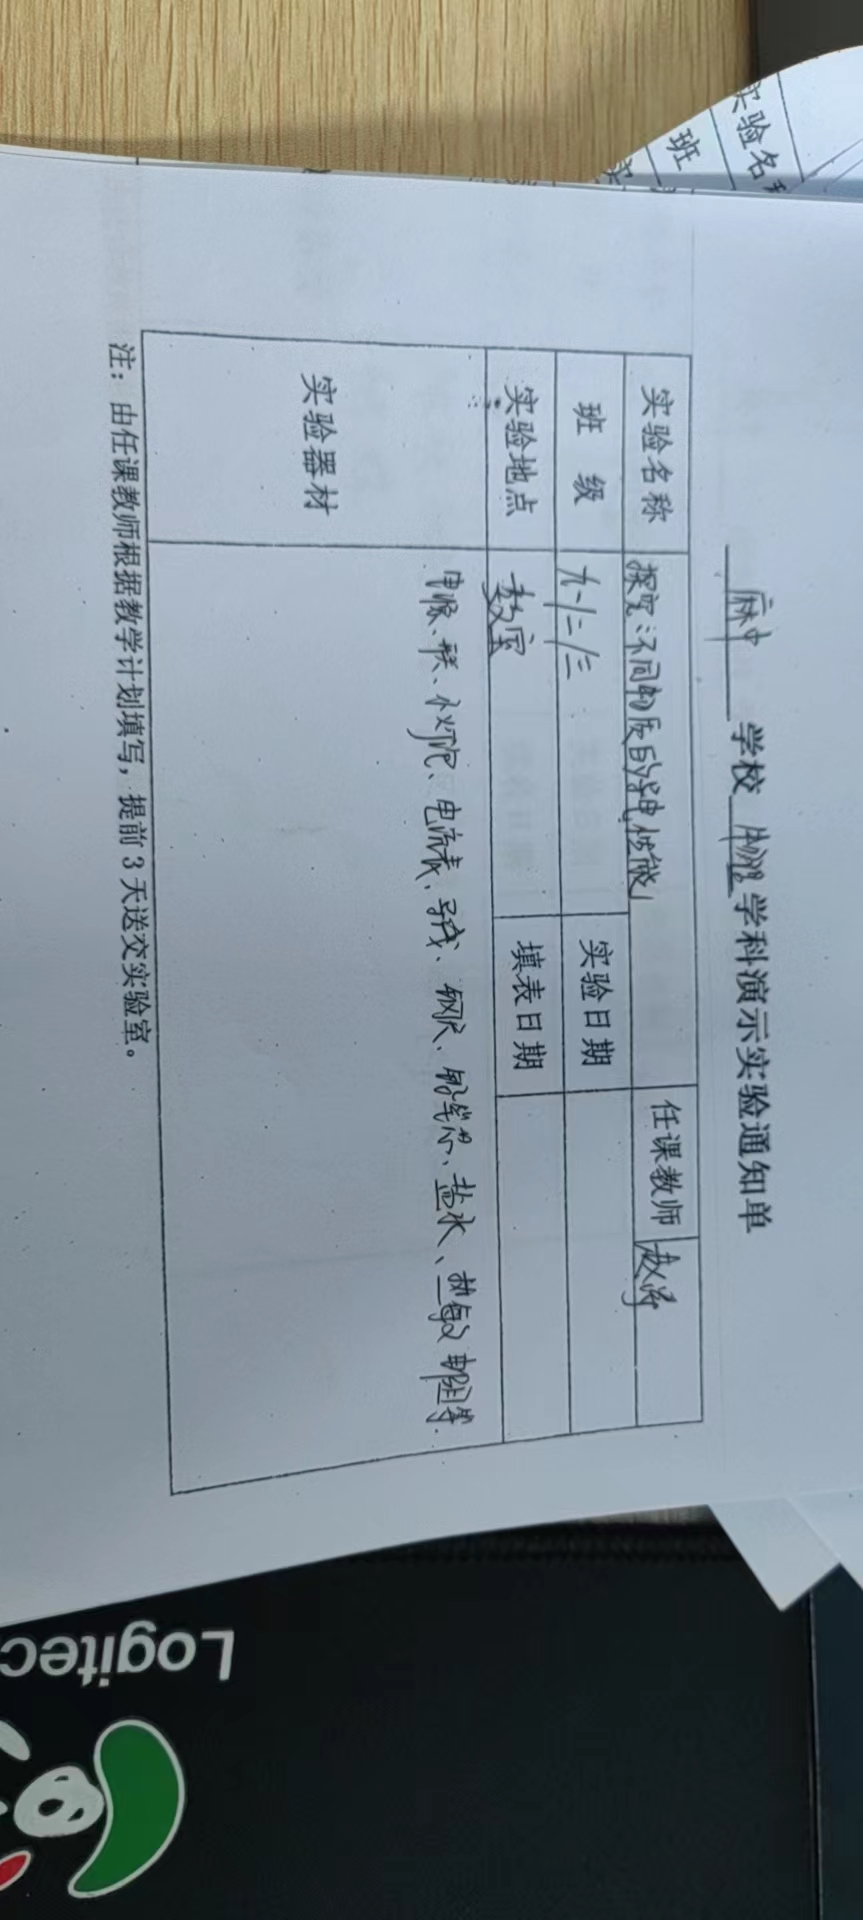 麻中 学校 物理 学科演示实验通知单
实验名称 探究:不同物质的导电性能 任课教师 赵
班 级 九一/二/三 实验日期
实验地点 教室 填表日期
实验器材 电源、开关、小灯泡、电流表、导线、钢尺、铅笔芯、盐水、热敏电阻等.
注：由任课教师根据教学计划填写，提前3天送交实验室。
实验名称
班
Logitec